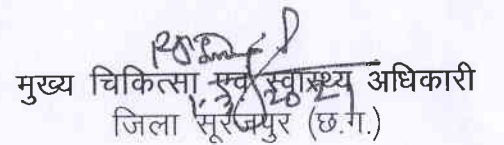 मुख्य चिकित्सा एवं स्वास्थ्य अधिकारी
जिला सूरजपुर (छ.ग.)